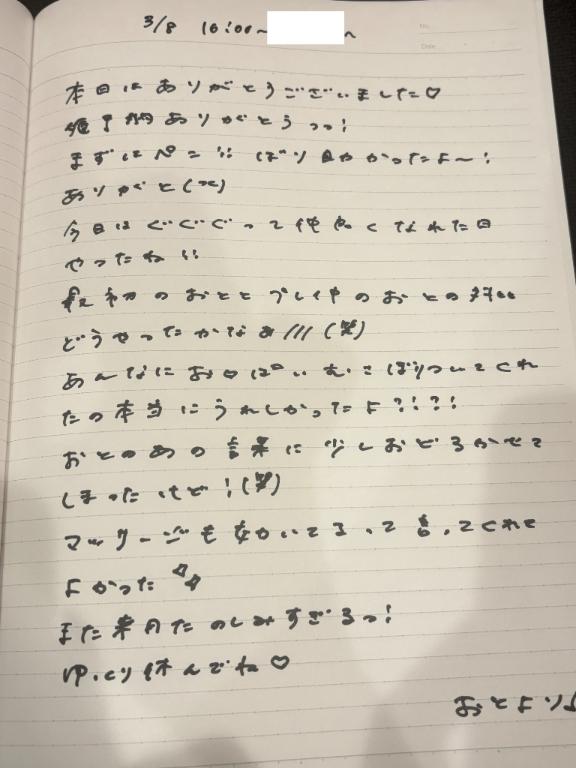 3/8 16:00〜 〜
No.
Date
本日はありがとうございました♡
姫予約ありがとうっっ!
まずは ばり良かったよ〜!
ありがと(
今日はぐぐぐって仲良くなれた日
やったね!!
最初のおととプレイ中のおとの
どうやったかなぁ///(笑)
あんなにおっぱい むさぼりついてくれ
たの本当にうれしかったよ?!?!
おとのあの言葉に少しおどろかせて
しまったけど!(笑)
マッサージも て もらってくれて
よかった
また来月たのしみすぎるっ!
ゆっくり休んでね♡
おとより♩